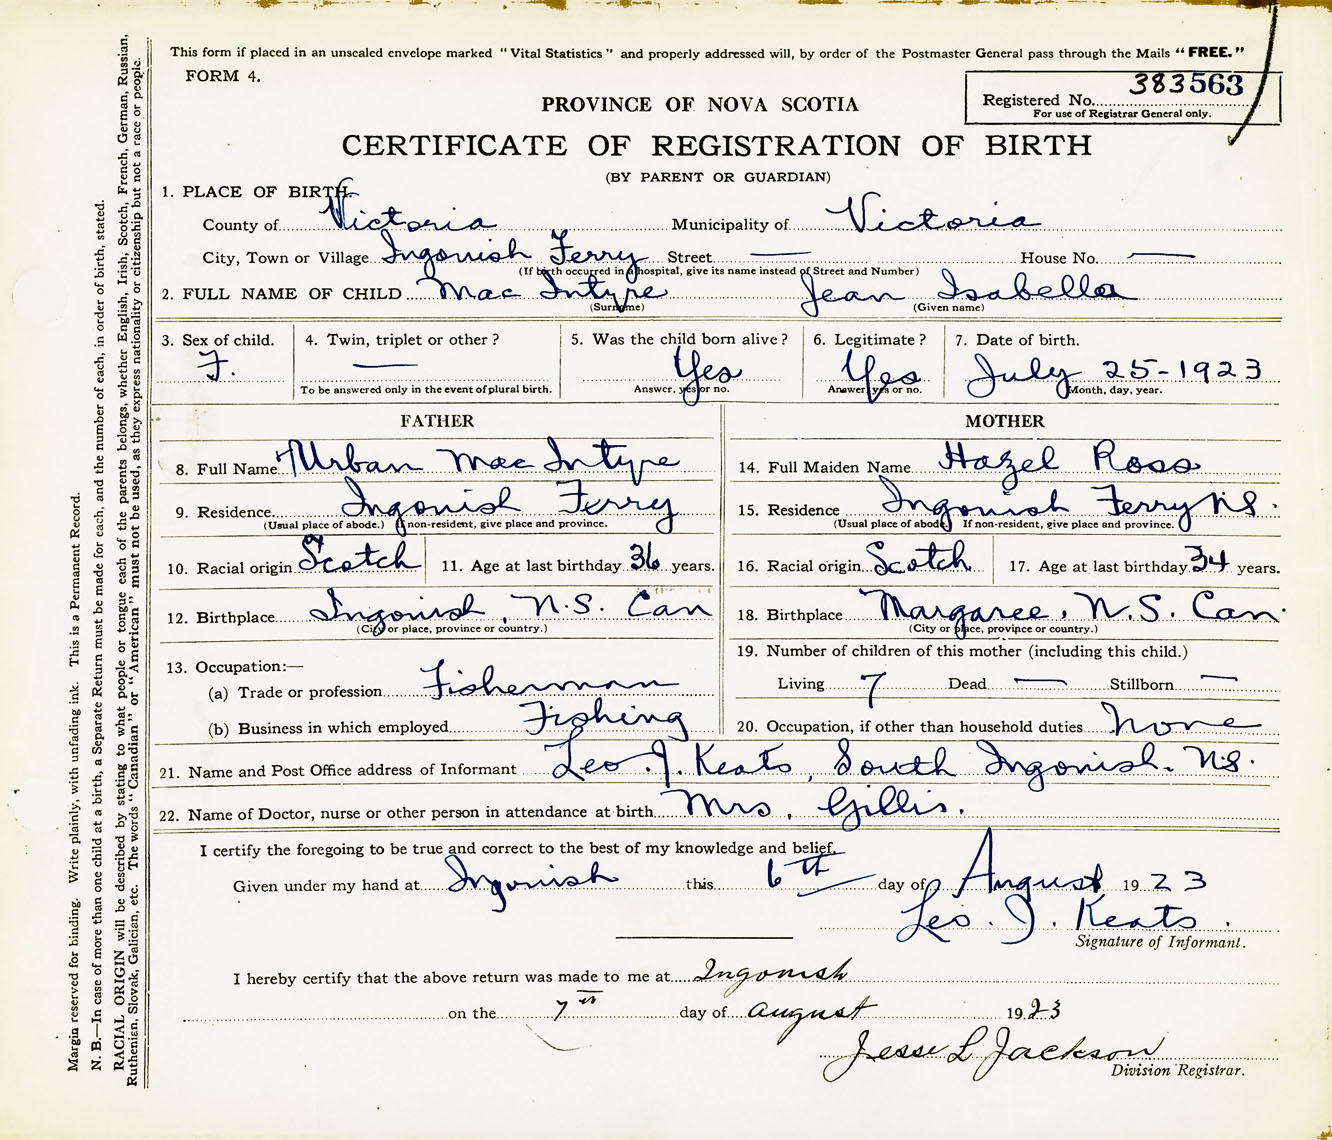 This form if placed in an unsealed envelope marked "Vital Statistics" and properly addressed will, by order of the Postmaster General pass through the Mails "FREE."
FORM 4.
383563
Registered No.
For use of Registrar General only.
PROVINCE OF NOVA SCOTIA
CERTIFICATE OF REGISTRATION OF BIRTH
(BY PARENT OR GUARDIAN)
1. PLACE OF BIRTH.
County of Victoria Municipality of Victoria
City, Town or Village Ingonish Ferry Street — House No. —
(If birth occurred in a hospital, give its name instead of Street and Number)
2. FULL NAME OF CHILD Mac Intyre Jean Isabella
(Surname) (Given name)
3. Sex of child. 4. Twin, triplet or other? 5. Was the child born alive? 6. Legitimate? 7. Date of birth.
F. — Yes Yes July 25-1923
To be answered only in the event of plural birth. Answer, yes or no. Answer yes or no. Month, day, year.
FATHER MOTHER
8. Full Name Urban Mac Intyre 14. Full Maiden Name Hazel Ross
9. Residence Ingonish Ferry 15. Residence Ingonish Ferry N.S.
(Usual place of abode.) If non-resident, give place and province. (Usual place of abode.) If non-resident, give place and province.
10. Racial origin Scotch 11. Age at last birthday 36 years. 16. Racial origin Scotch 17. Age at last birthday 34 years.
12. Birthplace Ingonish, N.S. Can 18. Birthplace Margaree, N.S. Can.
(City or place, province or country.) (City or place, province or country.)
13. Occupation:— 19. Number of children of this mother (including this child.)
(a) Trade or profession Fisherman Living 7 Dead — Stillborn —
(b) Business in which employed Fishing 20. Occupation, if other than household duties None
21. Name and Post Office address of Informant Leo. J. Keats, South Ingonish. N.S.
22. Name of Doctor, nurse or other person in attendance at birth Mrs. Gillis.
I certify the foregoing to be true and correct to the best of my knowledge and belief.
Given under my hand at Ingonish this 6th day of August 1923
Leo. J. Keats.
Signature of Informant.
I hereby certify that the above return was made to me at Ingonish
on the 7th day of august 1923
Jesse L Jackson
Division Registrar.
Margin reserved for binding. Write plainly, with unfading ink. This is a Permanent Record.
N. B.—In case of more than one child at a birth, a Separate Return must be made for each, and the number of each, in order of birth, stated.
RACIAL ORIGIN will be described by stating to what people or tongue each of the parents belongs, whether English, Irish, Scotch, French, German, Russian,
Ruthenian, Slovak, Galician, etc. The words "Canadian" or "American" must not be used, as they express nationality or citizenship but not a race or people.